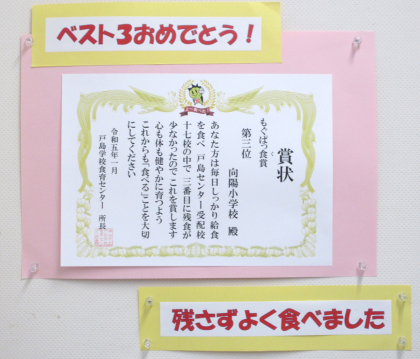 ベスト3おめでとう!
もぐぱっ食賞
賞状
第三位
向陽小学校 殿
あなた方は毎日しっかり給食
を食べ 戸島センター受配校
十七校の中で 三番目に残食が
少なかったので これを賞します
心も体も健やかに育つよう
これからも「食べる」ことを大切
にしてください
令和五年一月
戸島学校食育センター 所長
残さずよく食べました